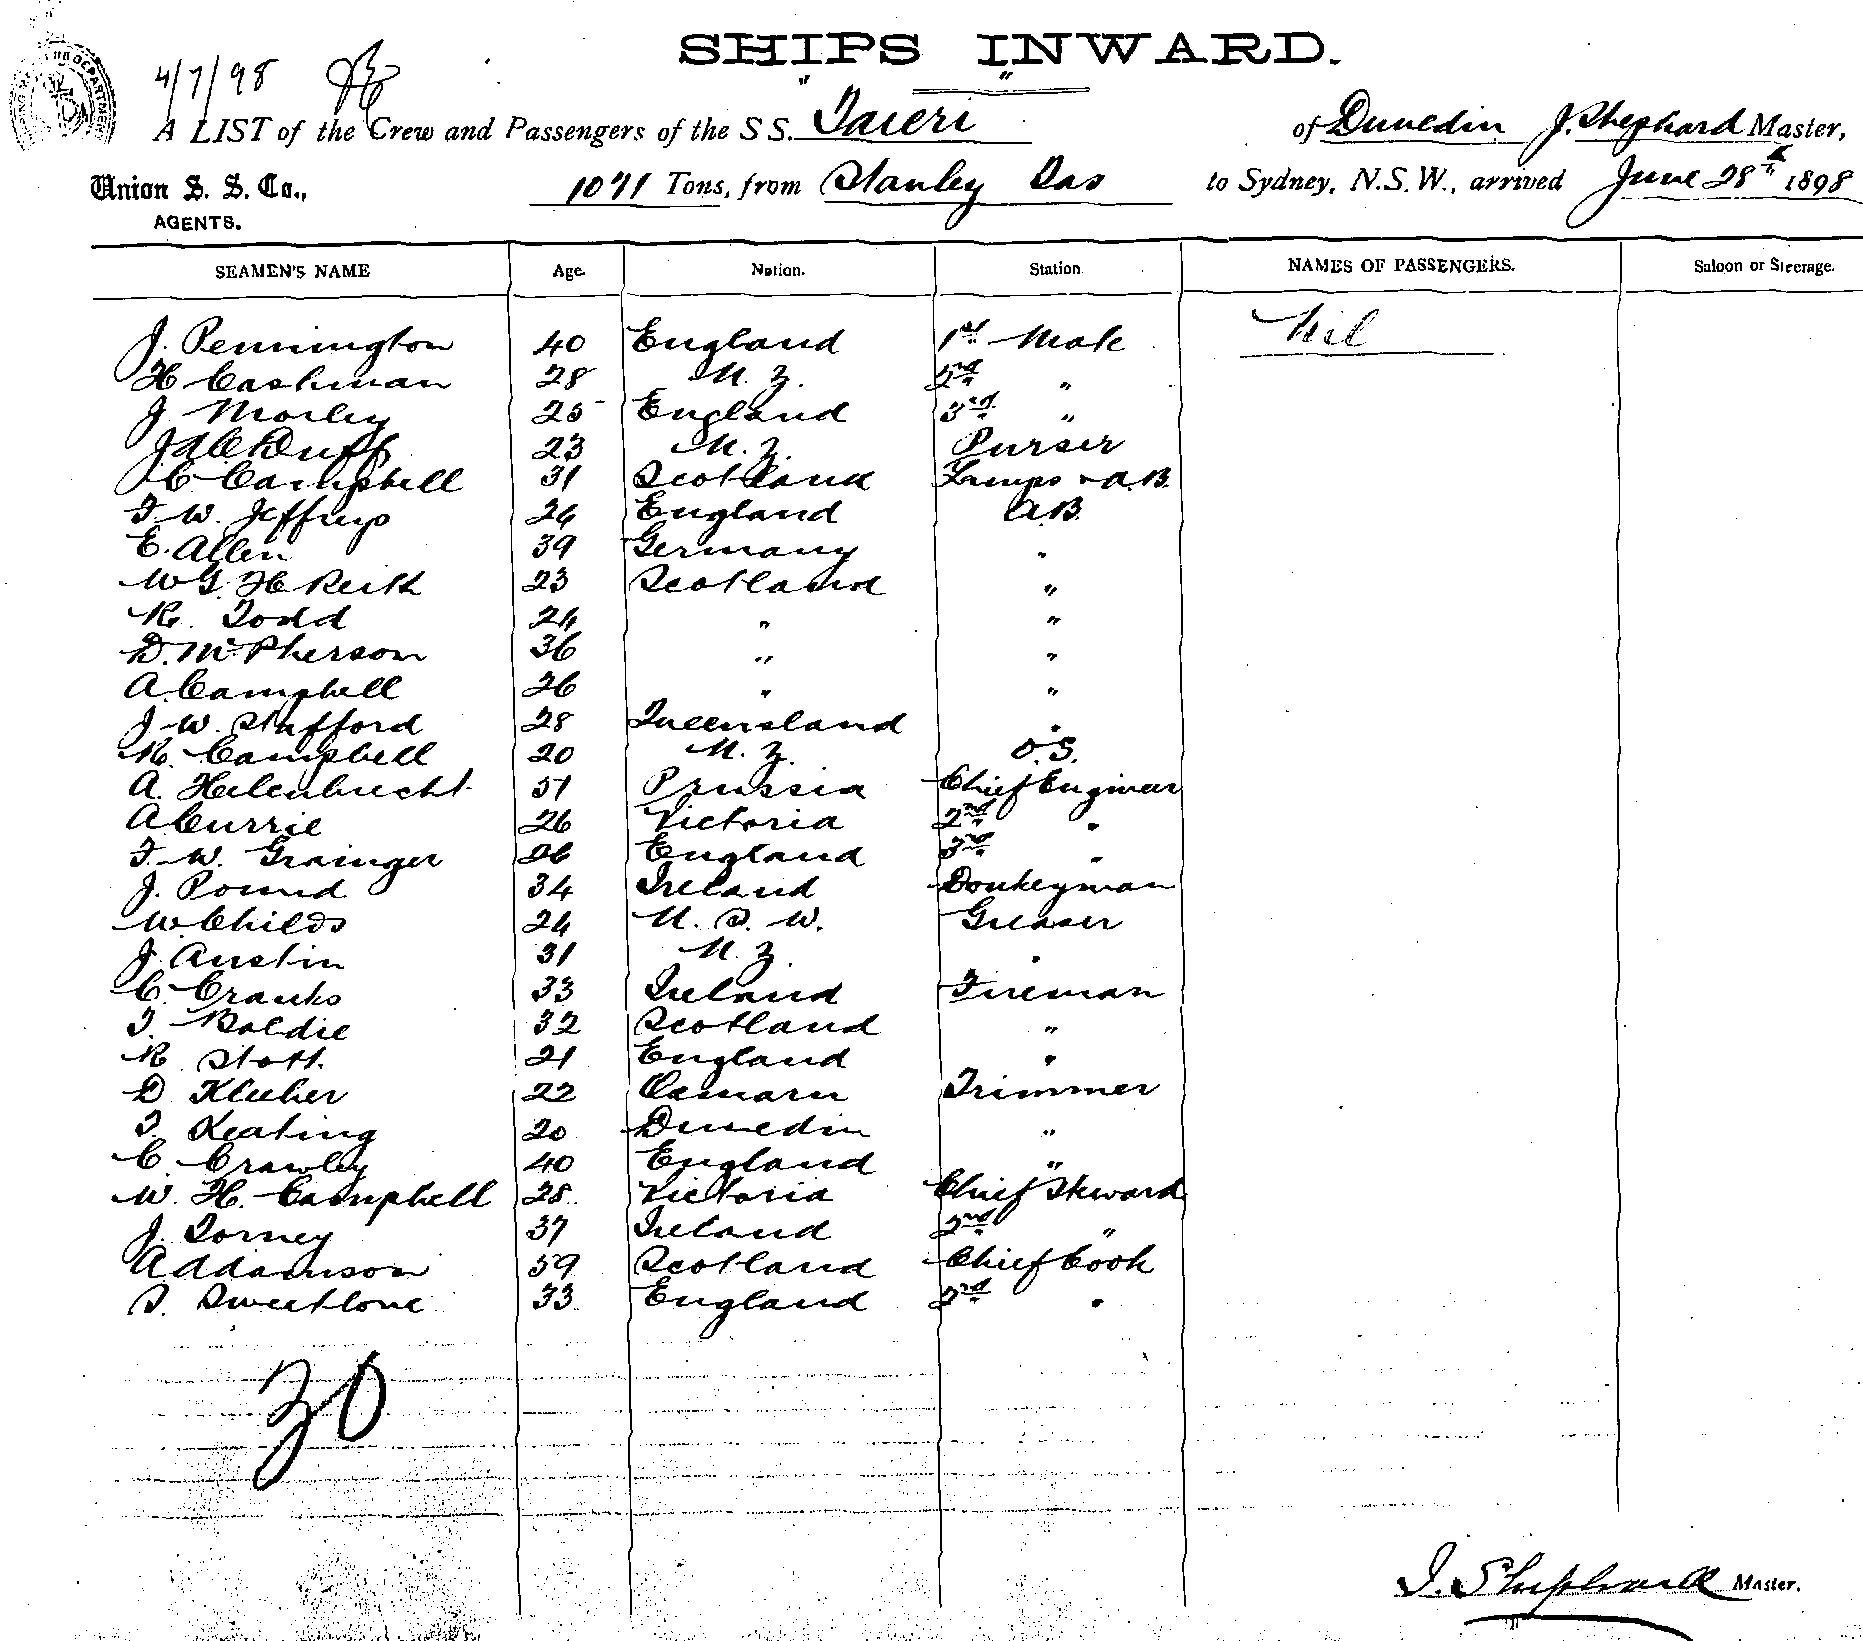 SHIPS INWARD.
4/7/98
A LIST of the Crew and Passengers of the S S. "Taieri" of Dunedin J. Shephard Master,
Union S. S. Co., 1071 Tons, from Stanley Tas to Sydney, N.S.W., arrived June 28th 1898
AGENTS.
SEAMEN'S NAME Age. Nation. Station NAMES OF PASSENGERS. Saloon or Steerage.
J. Pennington 40 England 1st Mate Nil
H Cashman 28 N. Z. 2nd "
J Morley 25 England 3rd "
Duff 23 N. Z. Purser
C Campbell 31 Scotland Lamps & A.B.
F. W. Jeffreys 24 England A.B.
E. Allen 39 Germany "
W G. H Reith 23 Scotland "
R. Todd 24 " "
D. McPherson 36 " "
A. Campbell 26 " "
J. W. Stafford 28 Queensland "
R. Campbell 20 N. Z. O.S.
A. Helenbrecht 51 Prussia Chief Engineer
A Currie 26 Victoria 2nd "
F. W. Grainger 26 England 3rd "
J. Pound 34 Ireland Donkeyman
W. Childs 24 N. S. W. Greaser
J. Austin 31 N. Z. "
C. Cranks 33 Ireland Fireman
T. Baldie 32 Scotland "
R Stott. 21 England "
D Kleeber 22 Oamaru Trimmer
T. Keating 20 Dunedin "
C. Crawley 40 England "
W. H. Campbell 28 Victoria Chief Steward
J. Torney 37 Ireland 2nd "
A Adamson 59 Scotland Chief Cook
S. Sweetlove 33 England 2nd "
30
J. Shephard Master.